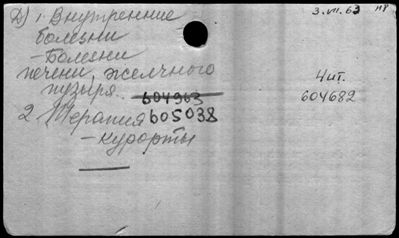 Д) 1. Внутренние
болезни
- Болезни
печени, желчного
пузыря. 604963
2. Терапия 605038
- курорты
3.VII.63 н8
Чит.
604682